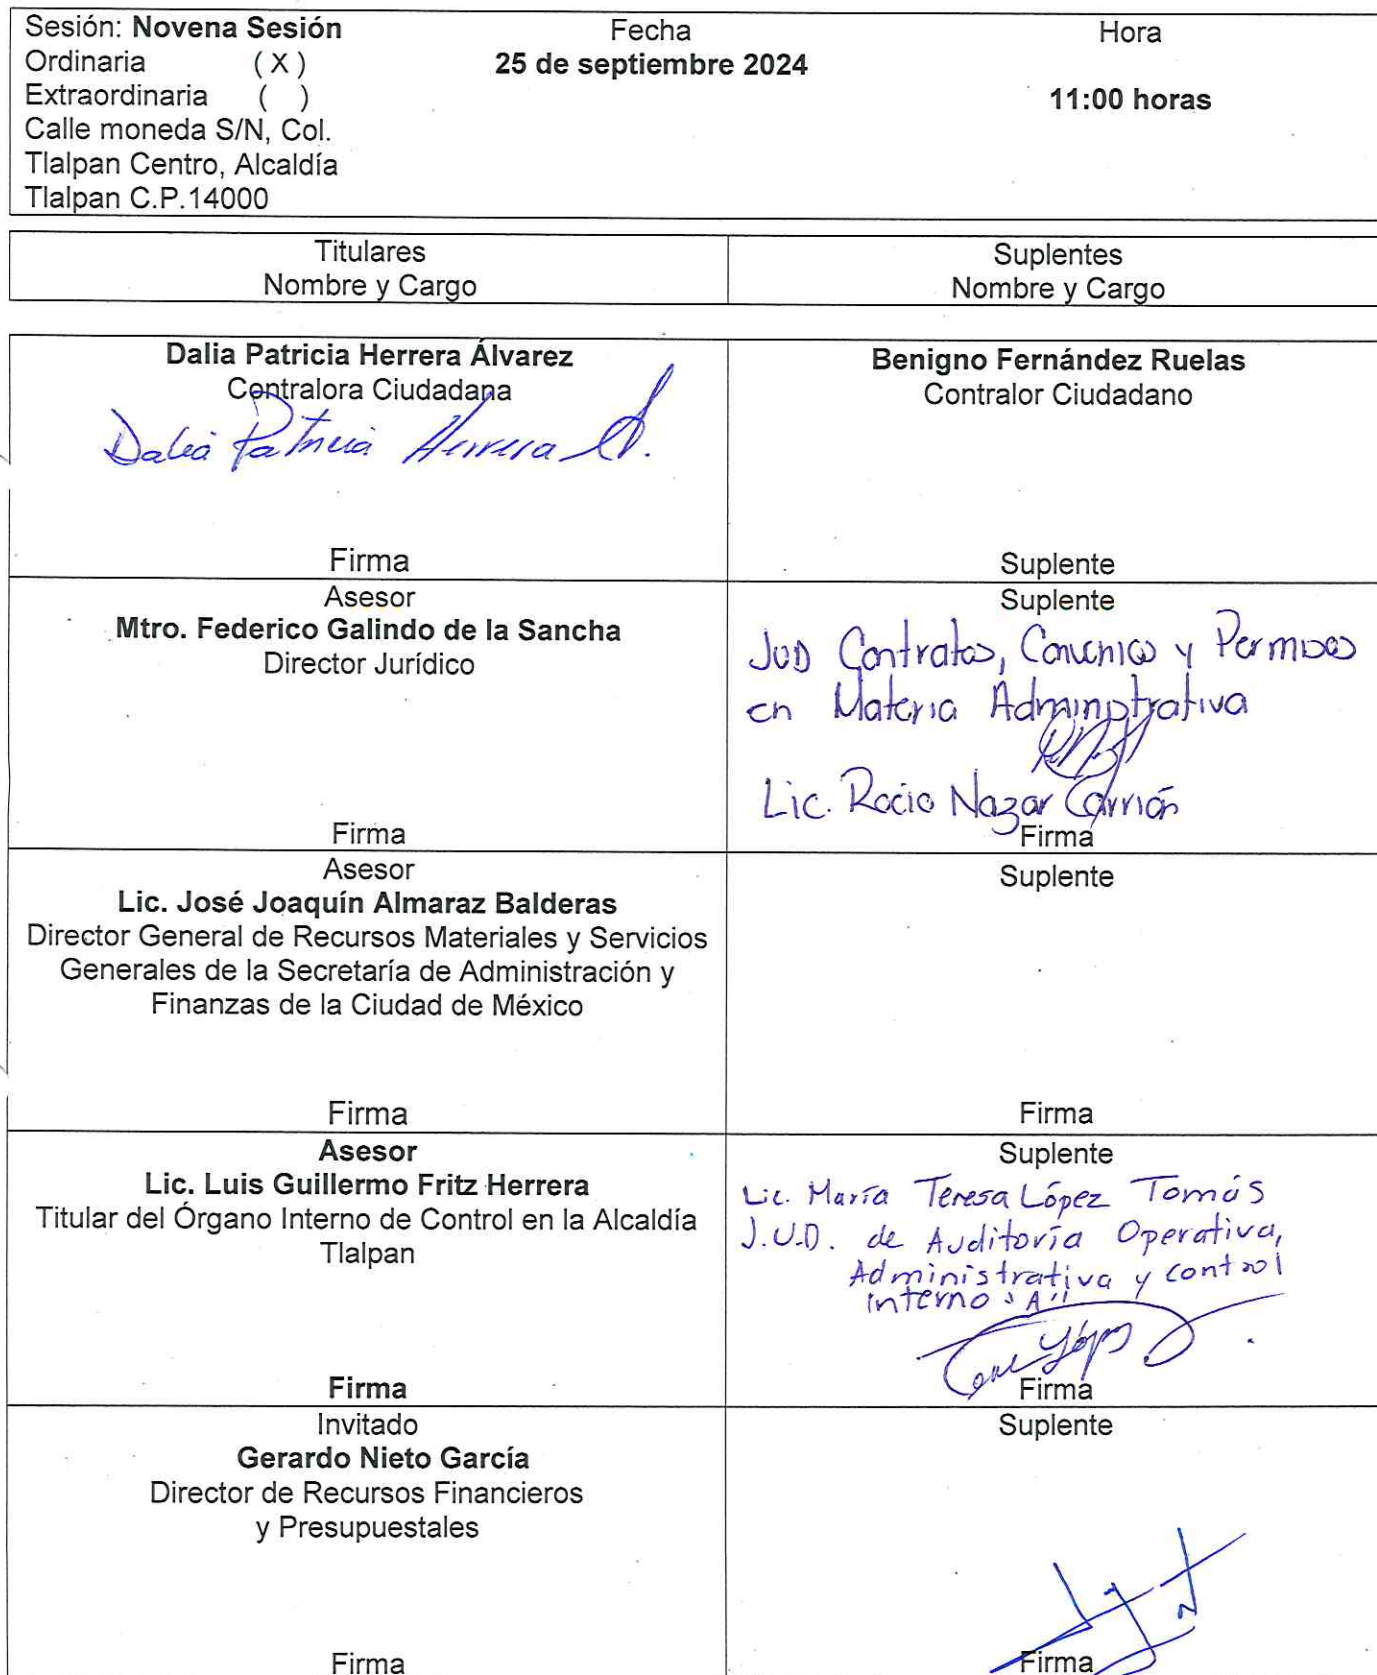 Sesión: Novena Sesión
Ordinaria ( X )
Extraordinaria ( )
Calle moneda S/N, Col.
Tlalpan Centro, Alcaldía
Tlalpan C.P.14000
Fecha
25 de septiembre 2024
Hora
11:00 horas
Titulares
Nombre y Cargo
Suplentes
Nombre y Cargo
Dalia Patricia Herrera Álvarez
Contralora Ciudadana
Dalia Patricia Herrera A.
Firma
Benigno Fernández Ruelas
Contralor Ciudadano
Suplente
Asesor
Mtro. Federico Galindo de la Sancha
Director Jurídico
Firma
Suplente
JUD Contratos, Convenios y Permisos
en Materia Administrativa
Lic. Rocio Nazar Carrión
Firma
Asesor
Lic. José Joaquín Almaraz Balderas
Director General de Recursos Materiales y Servicios
Generales de la Secretaría de Administración y
Finanzas de la Ciudad de México
Firma
Suplente
Firma
Asesor
Lic. Luis Guillermo Fritz Herrera
Titular del Órgano Interno de Control en la Alcaldía
Tlalpan
Firma
Suplente
Lic. María Teresa López Tomás
J.U.D. de Auditoría Operativa,
Administrativa y control
interno "A"
Firma
Invitado
Gerardo Nieto García
Director de Recursos Financieros
y Presupuestales
Firma
Suplente
Firma